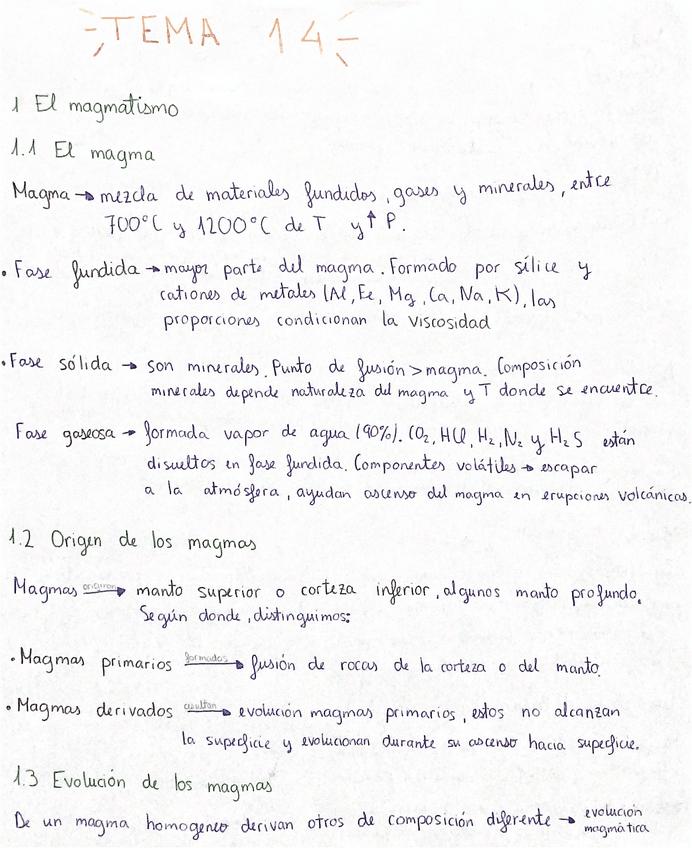 TEMA 14
1 El magmatismo
1.1 El magma
Magma → mezcla de materiales fundidos, gases y minerales, entre
700°C y 1200°C de T y ↑ P.
• Fase fundida → mayor parte del magma. Formado por sílice y
cationes de metales (Al, Fe, Mg, Ca, Na, K), las
proporciones condicionan la viscosidad
• Fase sólida → son minerales. Punto de fusión > magma. Composición
minerales depende naturaleza del magma y T donde se encuentre.
Fase gaseosa → formada vapor de agua (90%). CO₂, HCl, H₂, N₂ y H₂S están
disueltos en fase fundida. Componentes volátiles → escapar
a la atmósfera, ayudan ascenso del magma en erupciones volcánicas.
1.2 Origen de los magmas
Magmas originan → manto superior o corteza inferior, algunos manto profundo.
Según donde, distinguimos:
• Magmas primarios formados → fusión de rocas de la corteza o del manto.
• Magmas derivados → evolución magmas primarios, estos no alcanzan
la superficie y evolucionan durante su ascenso hacia superficie.
1.3 Evolución de los magmas
De un magma homogeneo derivan otros de composición diferente → evolución
magmática